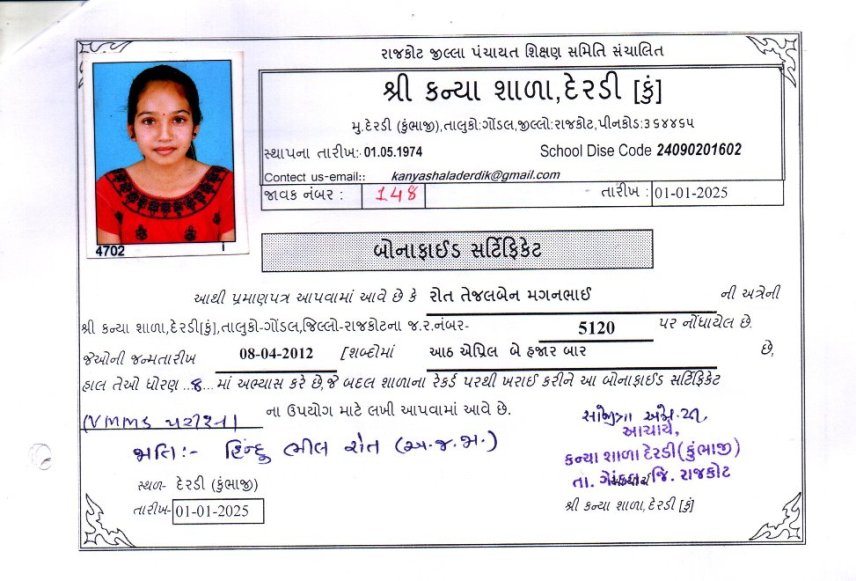 રાજકોટ જીલ્લા પંચાયત શિક્ષણ સમિતિ સંચાલિત
શ્રી કન્યા શાળા,દેરડી [કું]
મુ.દેરડી (કુંભાજી),તાલુકો:ગોંડલ,જીલ્લો:રાજકોટ,પીનકોડ:૩૬૪૪૬૫
સ્થાપના તારીખ:- 01.05.1974 School Dise Code 24090201602
Contect us-email:: kanyashaladerdik@gmail.com
જાવક નંબર : 148 તારીખ : 01-01-2025
4702
બોનાફાઈડ સર્ટિફિકેટ
આથી પ્રમાણપત્ર આપવામાં આવે છે કે રોત તેજલબેન મગનભાઈ ની અત્રેની
શ્રી કન્યા શાળા,દેરડી[કું],તાલુકો-ગોંડલ,જિલ્લો-રાજકોટના જ.ર.નંબર- 5120 પર નોંધાયેલ છે.
જેઓની જન્મતારીખ 08-04-2012 [શબ્દોમાં આઠ એપ્રિલ બે હજાર બાર છે,
હાલ તેઓ ધોરણ ..8... માં અભ્યાસ કરે છે,જે બદલ શાળાના રેકર્ડ પરથી ખરાઈ કરીને આ બોનાફાઈડ સર્ટિફિકેટ
(NMMS પરીક્ષા) ના ઉપયોગ માટે લખી આપવામાં આવે છે.
જાતિ:- હિન્દુ ભીલ રોત (અ.જ.જા.)
આચાર્ય,
કન્યા શાળા દેરડી(કુંભાજી)
તા. ગોંડલ જિ. રાજકોટ
સ્થળ- દેરડી (કુંભાજી)
તારીખ- 01-01-2025
શ્રી કન્યા શાળા,દેરડી [કું]